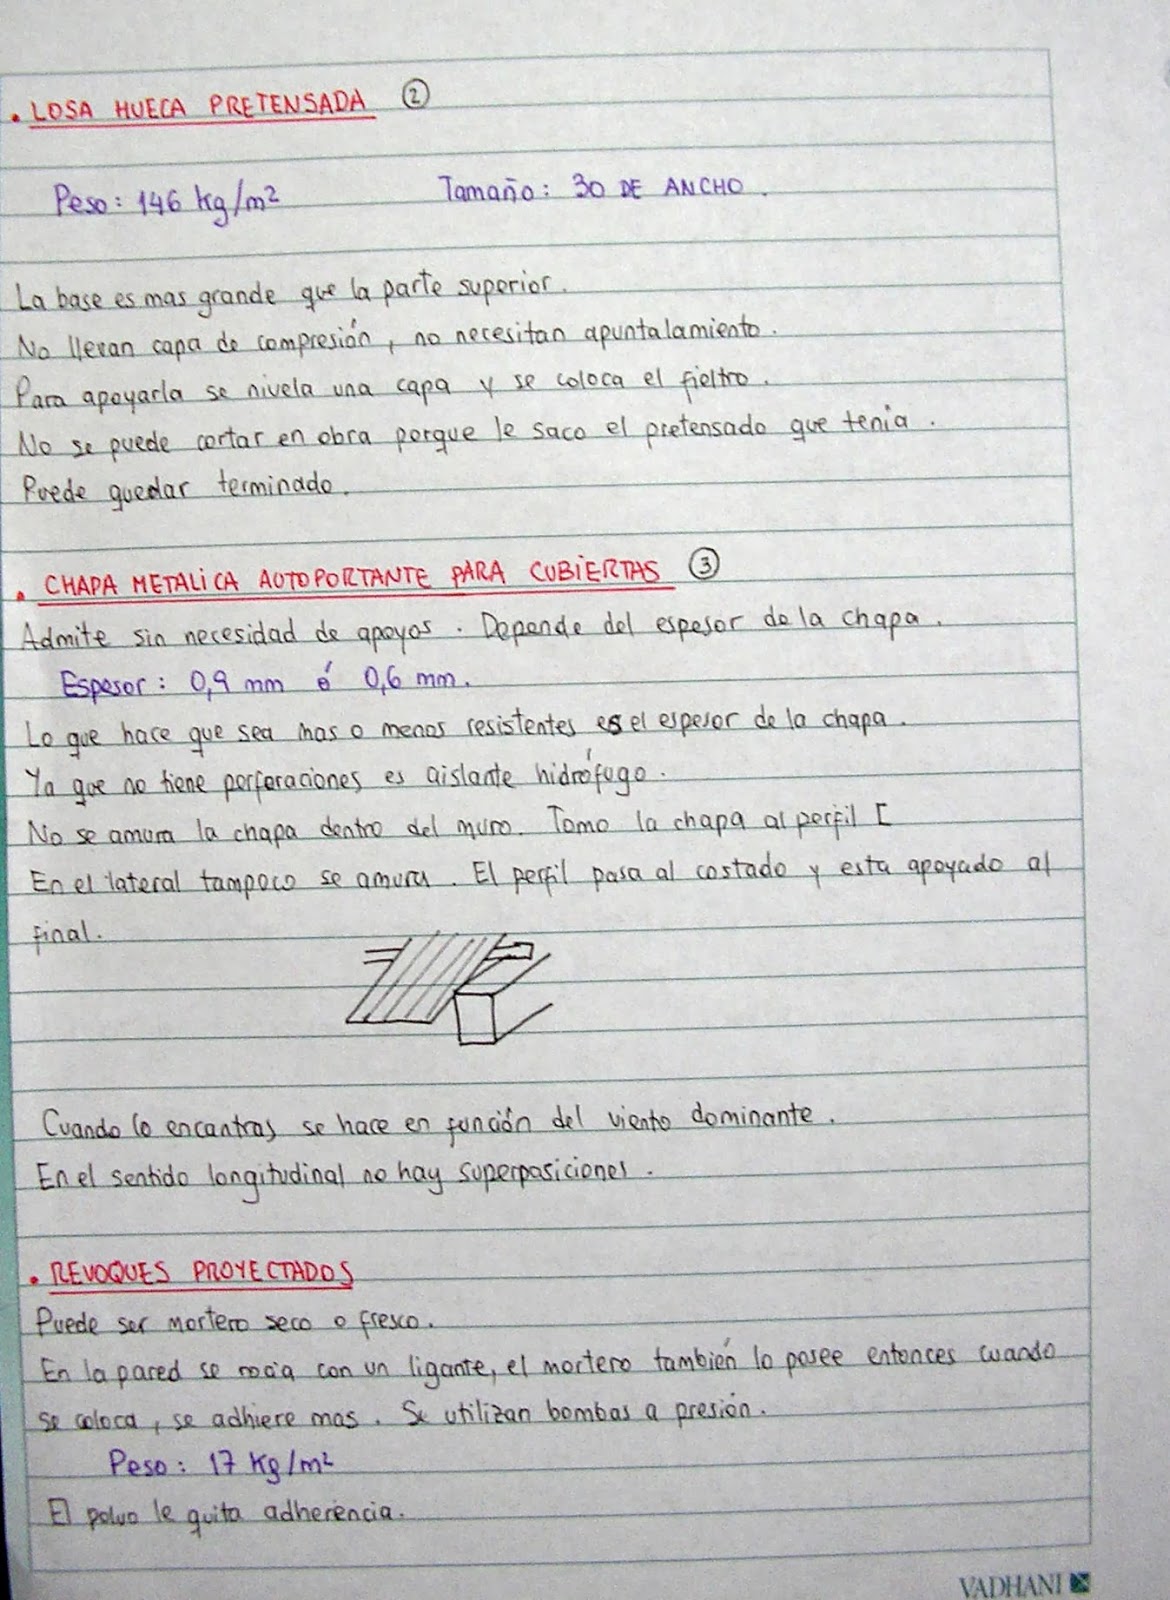 • LOSA HUECA PRETENSADA ②
Peso: 146 kg/m² Tamaño: 30 DE ANCHO.
La base es mas grande que la parte superior.
No llevan capa de compresión, no necesitan apuntalamiento.
Para apoyarla se nivela una capa y se coloca el fieltro.
No se puede cortar en obra porque le saco el pretensado que tenia.
Puede quedar terminado.
• CHAPA METALiCA AUTOPORTANTE PARA CUBiERTAS ③
Admite sin necesidad de apoyos. Depende del espesor de la chapa.
Espesor: 0,9 mm ó 0,6 mm.
Lo que hace que sea mas o menos resistentes es el espesor de la chapa.
Ya que no tiene perforaciones es aislante hidrófugo.
No se amura la chapa dentro del muro. Tomo la chapa al perfil [
En el lateral tampoco se amura. El perfil pasa al costado y esta apoyado al
final.
Cuando lo encantras se hace en función del viento dominante.
En el sentido longitudinal no hay superposiciones.
• REVOQUES PROYECTADOS
Puede ser mortero seco o fresco.
En la pared se rocia con un ligante, el mortero también lo posee entonces cuando
se coloca, se adhiere mas. Se utilizan bombas a presión.
Peso: 17 Kg/m²
El polvo le quita adherencia.
VADHANI